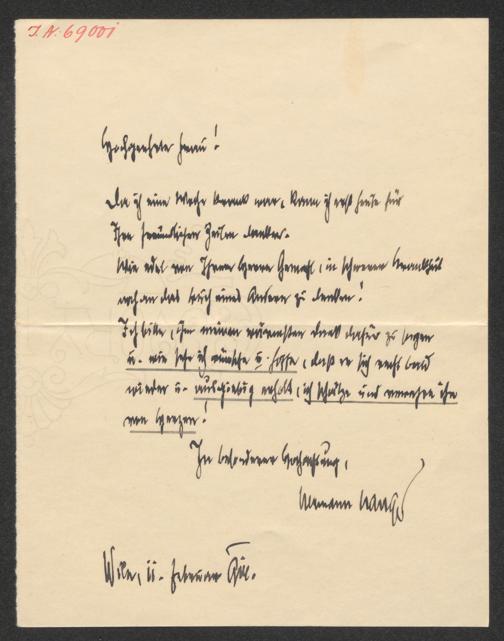 I. N. 69001
Hochgeehrte Frau!
Da ich eine Woche krank war, kann ich erst heute für
Ihre freundlichen Zeilen danken.
Wie edel von Ihrem Herrn Gemahl, in schwerer Krankheit
noch an das Buch eines Andern zu denken!
Ich bitte, ihm meinen wärmsten Dank dafür zu sagen
u. wie sehr ich wünsche u. hoffe, daß er sich recht bald
wieder u. ausgiebig erholt, ich schätze und verehre ihn
von Herzen!
In besonderer Hochachtung,
Hermann
Wien, 11. Februar